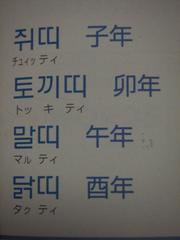 쥐띠 子年
チュィッ ティ
토끼띠 卯年
トッ キ ティ
말띠 午年
マル ティ
닭띠 酉年
タク ティ